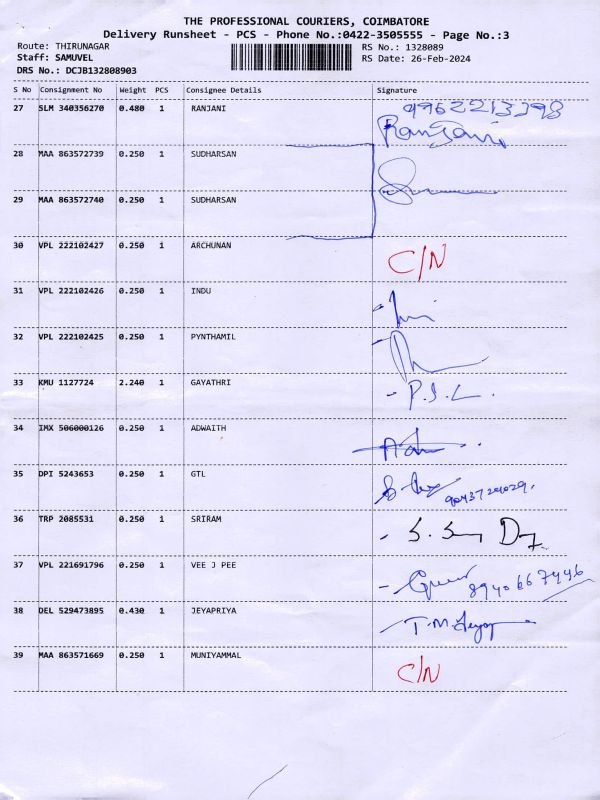 THE PROFESSIONAL COURIERS, COIMBATORE
Delivery Runsheet - PCS - Phone No.:0422-3505555 - Page No.:3
Route: THIRUNAGAR RS No.: 1328089
Staff: SAMUVEL RS Date: 26-Feb-2024
DRS No.: DCJB132808903
S No Consignment No Weight PCS Consignee Details Signature
27 SLM 340356270 0.480 1 RANJANI
Ranjani
28 MAA 863572739 0.250 1 SUDHARSAN
29 MAA 863572740 0.250 1 SUDHARSAN
30 VPL 222102427 0.250 1 ARCHUNAN C/N
31 VPL 222102426 0.250 1 INDU
32 VPL 222102425 0.250 1 PYNTHAMIL
33 KMU 1127724 2.240 1 GAYATHRI - P.S.L.
34 IMX 506000126 0.250 1 ADWAITH
35 DPI 5243653 0.250 1 GTL
36 TRP 2085531 0.250 1 SRIRAM
37 VPL 221691796 0.250 1 VEE J PEE 8940667446
38 DEL 529473895 0.430 1 JEYAPRIYA T.M.Jeyap
39 MAA 863571669 0.250 1 MUNIYAMMAL C/N